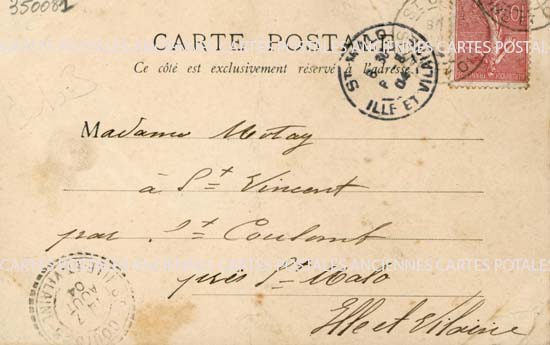 350081
CARTE POSTALE
Ce côté est exclusivement réservé à l'adresse
ST MALO
ILLE ET VILAINE
04
10
Madame Motay
à St Vincent
par St Coulomb
près St Malo
Ille et Vilaine
7
AOUT
04
LES ANCIENNES CARTES POSTALES